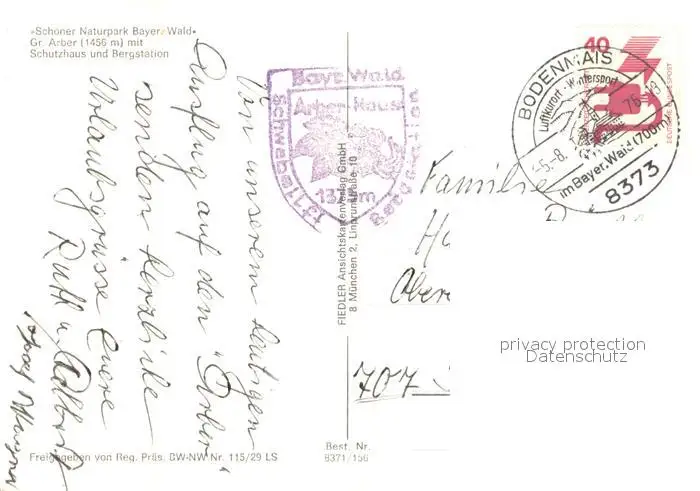 »Schöner Naturpark Bayer. Wald«
Gr. Arber (1456 m) mit
Schutzhaus und Bergstation
Von unserem heutigen
Ausflug auf den "Arber"
senden herzliche
Urlaubsgrüsse Euere
Ruth u. Adalbert
Bayr. Wald
Arber Haus
Sessellift
Bergstation
FIEDLER Ansichtskartenverlag GmbH
8 München 2, Linprunstraße 10
40
DEUTSCHE BUNDESPOST
BODENMAIS
Luftkurort - Wintersport
-5.-8.
im Bayer. Wald (700m)
8373
Familie
707
privacy protection
Datenschutz
Freigegeben von Reg. Präs. BW-NW Nr. 115/29 LS
Best. Nr.
8371/156